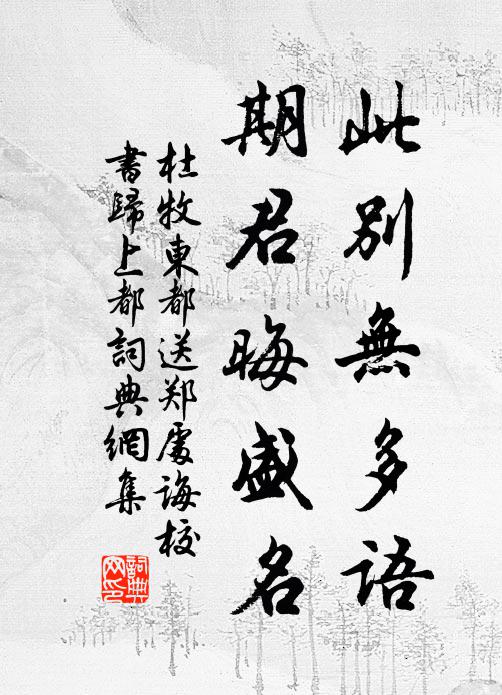 此別無多語
期君晦盛名
杜牧東都送郑處誨校
書歸上都詞典網集
詞典网印